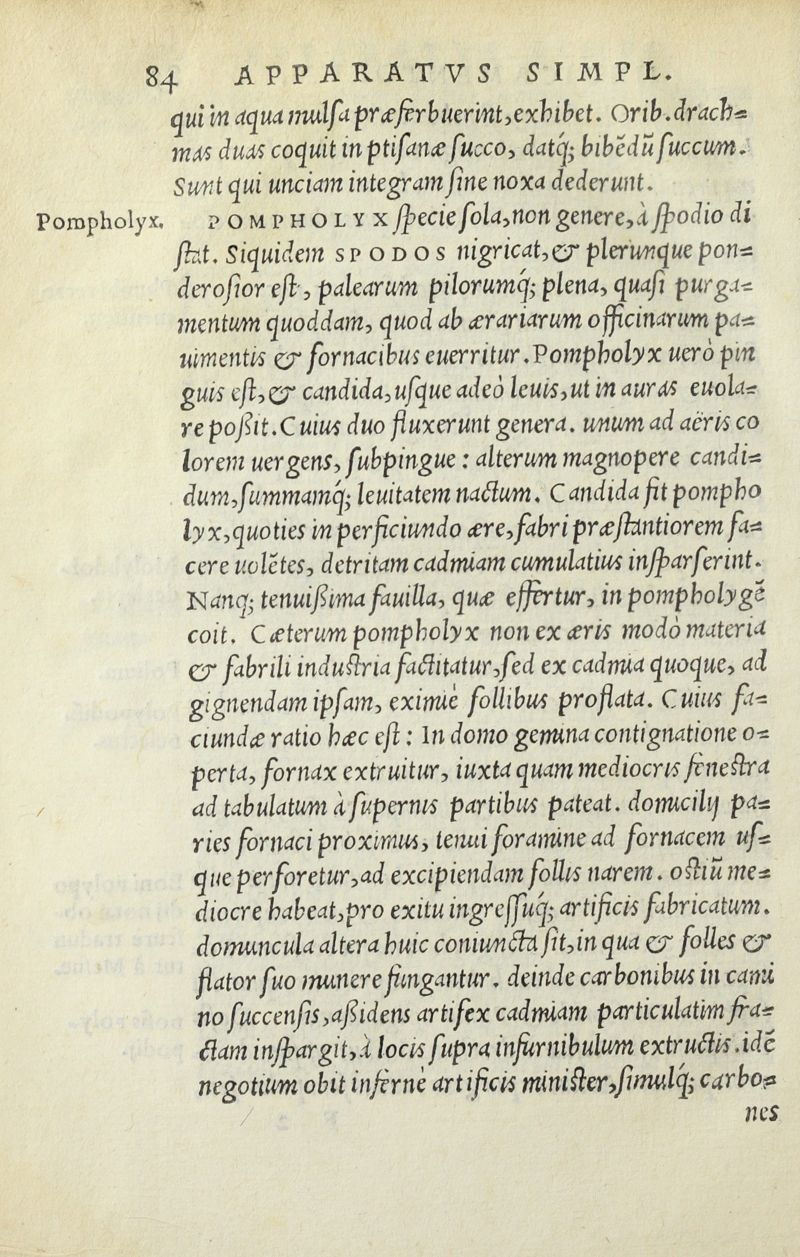 84 APPARATVS SIMPL.
qui in aqua mulsa præferbuerint, exhibet. Orib. drach=
mas duas coquit in ptisanæ succo, datq́; bibēdū succum.
Sunt qui unciam integram sine noxa dederunt.
Pompholyx. POMPHOLYX specie sola, non genere, à spodio di
stat. Siquidem SPODOS nigricat, & plerunque pon=
derosior est, palearum pilorumq́; plena, quasi purga=
mentum quoddam, quod ab ærariarum officinarum pa=
uimentis & fornacibus euerritur. Pompholyx uerò pin
guis est, & candida, usque adeò leuis, ut in auras euola=
re possit. Cuius duo fluxerunt genera. unum ad aëris co
lorem uergens, subpingue : alterum magnopere candi=
dum, summamq́; leuitatem nactum. Candida fit pompho
lyx, quoties in perficiundo ære, fabri præstantiorem fa=
cere uolētes, detritam cadmiam cumulatius insparserint.
Nanq; tenuissima fauilla, quæ effertur, in pompholygē
coit. Cæterum pompholyx non ex æris modò materia
& fabrili industria factitatur, sed ex cadmia quoque, ad
gignendam ipsam, eximiè follibus proflata. Cuius fa=
ciundæ ratio hæc est : In domo gemina contignatione o=
perta, fornax extruitur, iuxta quam mediocris fenestra
ad tabulatum à supernis partibus pateat. domicilij pa=
ries fornaci proximus, tenui foramine ad fornacem us=
que perforetur, ad excipiendam follis narem. ostiū me=
diocre habeat, pro exitu ingressuq́; artificis fabricatum.
domuncula altera huic coniuncta sit, in qua & folles &
flator suo munere fungantur. deinde carbonibus in cami
no succensis, assidens artifex cadmiam particulatim fra=
ctam inspargit, à locis supra infurnibulum extructis. idē
negotium obit infernè artificis minister, simulq́; carbo=
nes